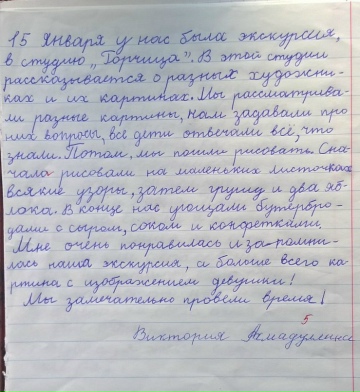 15 января у нас была экскурсия,
в студию „Горчица". В этой студии
рассказывается о разных художни-
ках и их картинах. Мы рассматрива-
ли разные картины, нам задавали про
них вопросы, все дети отвечали всё, что
знали. Потом, мы пошли рисовать. Сна-
чала рисовали на маленьких листочках
всякие узоры, затем грушу и два яб-
лока. В конце нас угощали бутербро-
дами с сыром, соком и конфетками.
Мне очень понравилась и за помни-
лось наша экскурсия, а больше всего ка-
ртина с изображением девушки!
Мы замечательно провели время!
5
Виктория